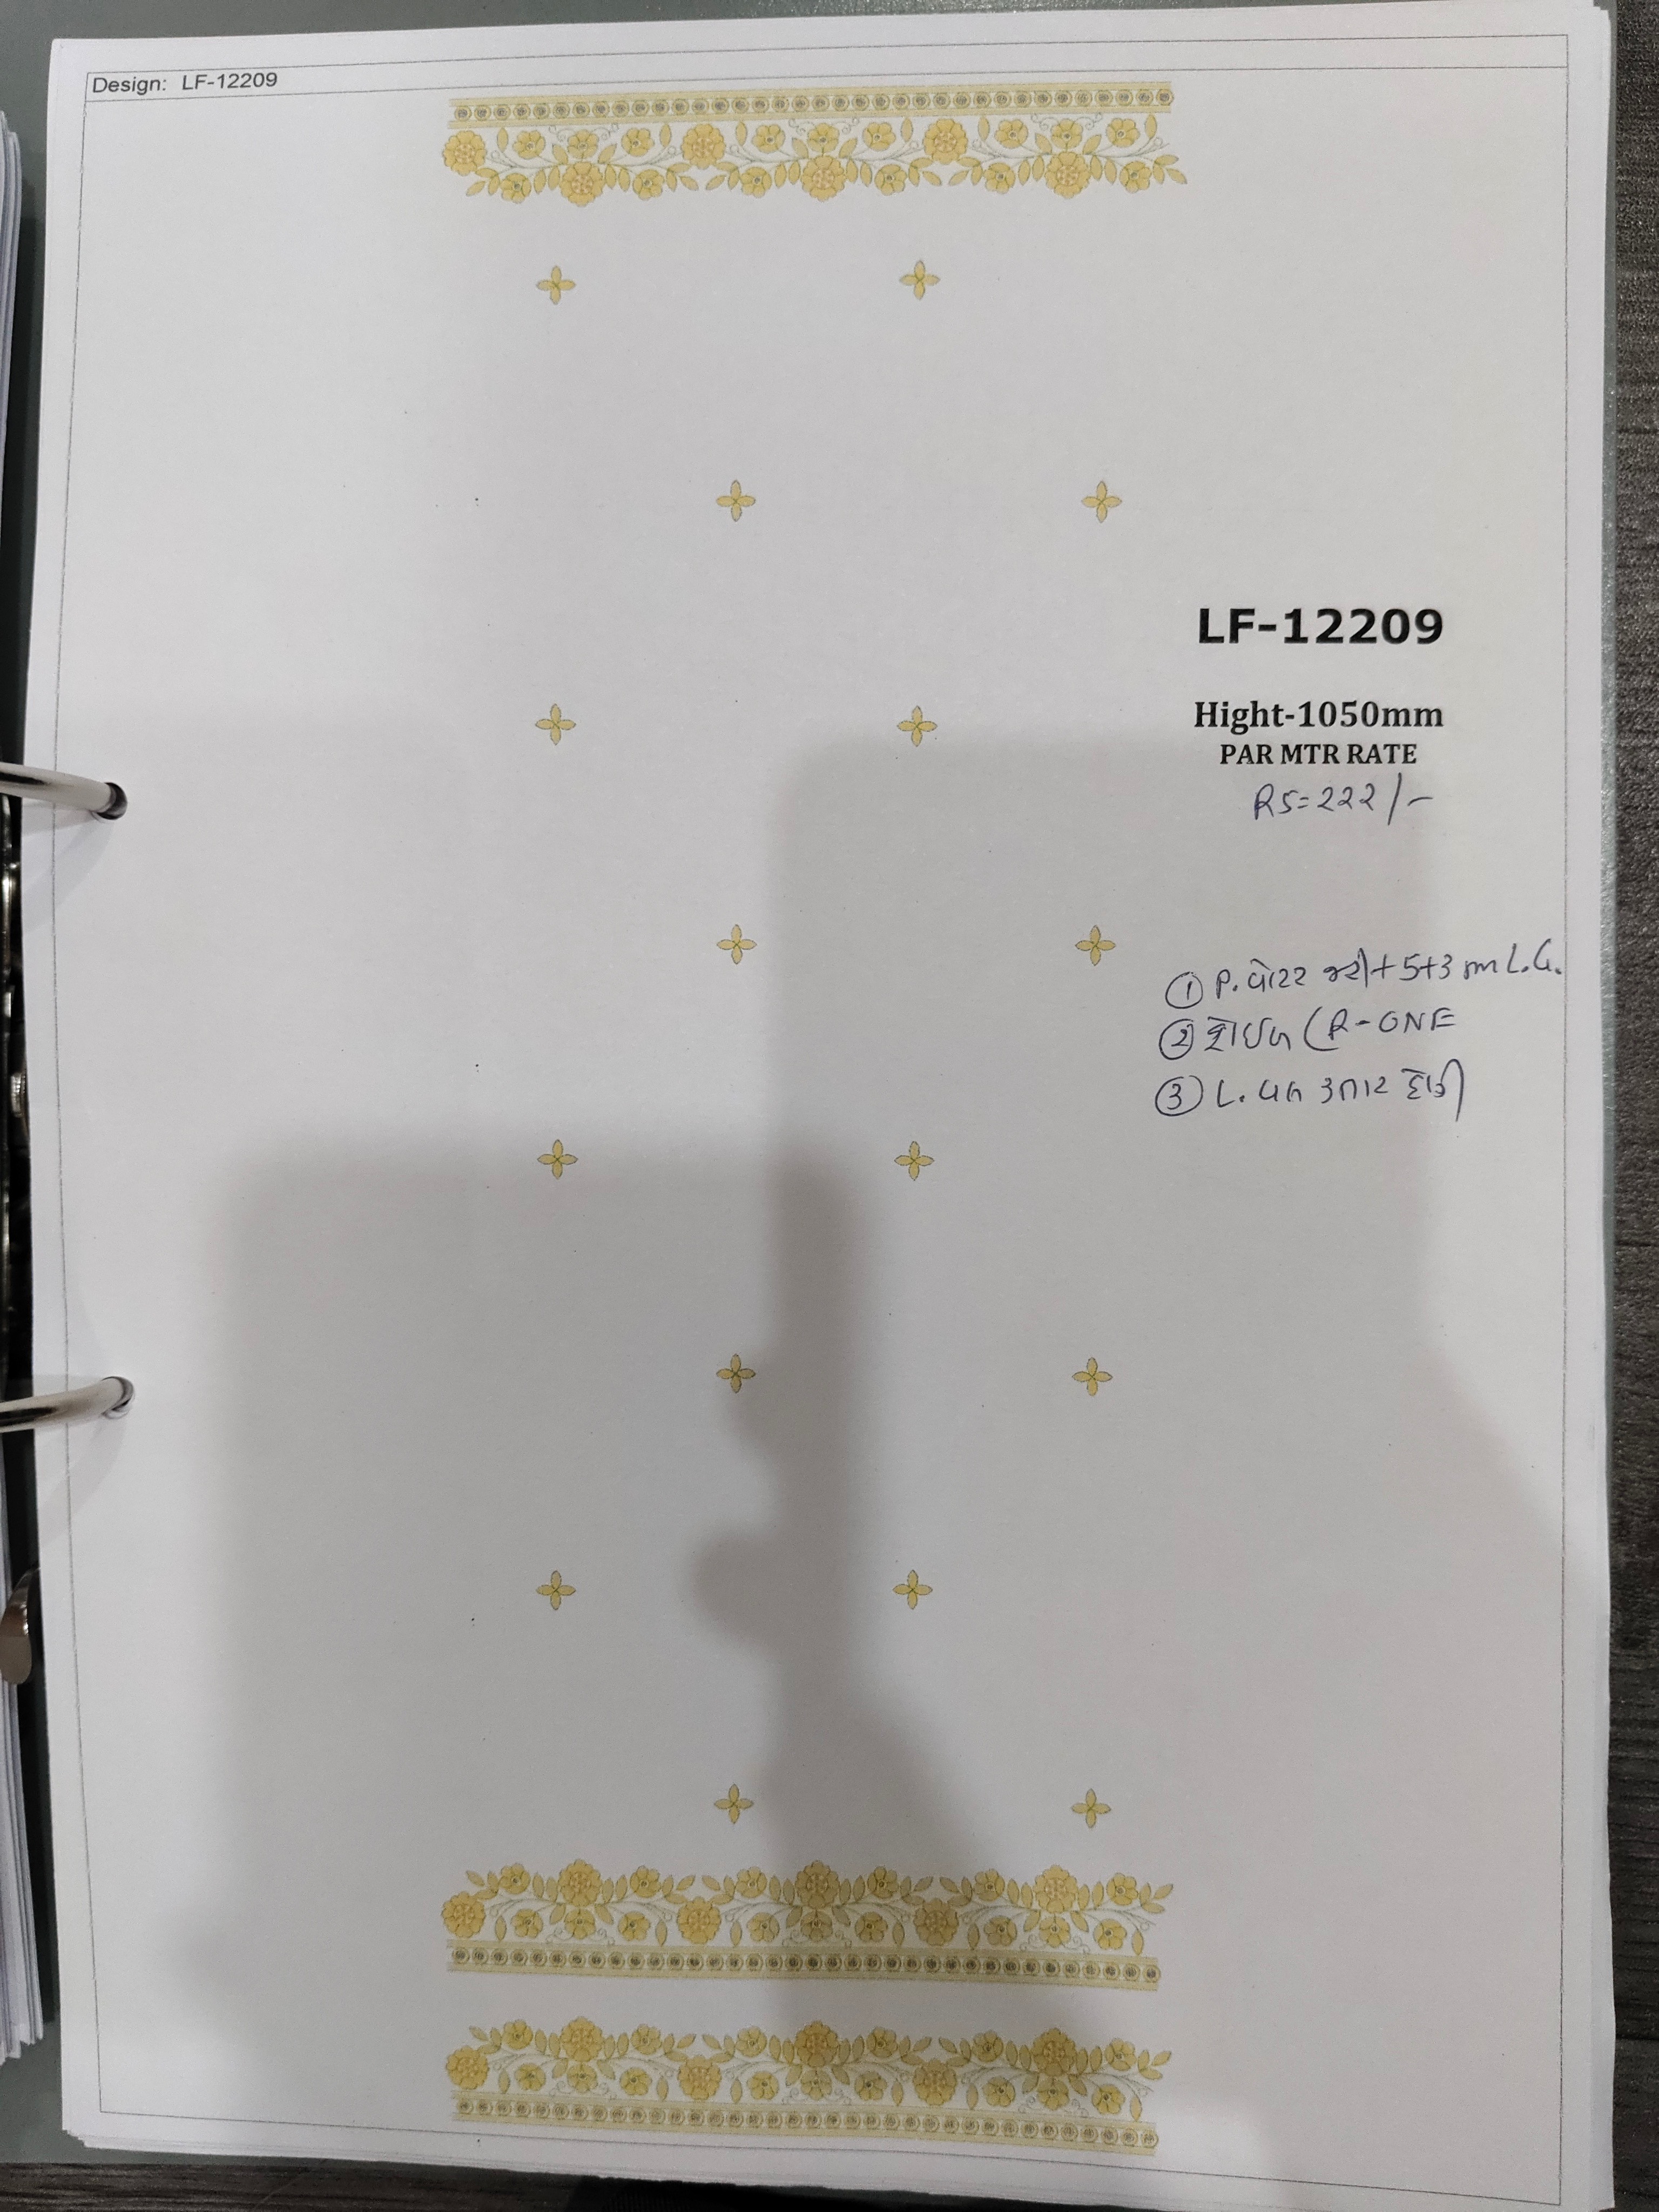 Design: LF-12209
LF-12209
Hight-1050mm
PAR MTR RATE
RS=222/-
① P. વોટર જરી+5+3 mm L.G.
② (R-ONE
③ L.